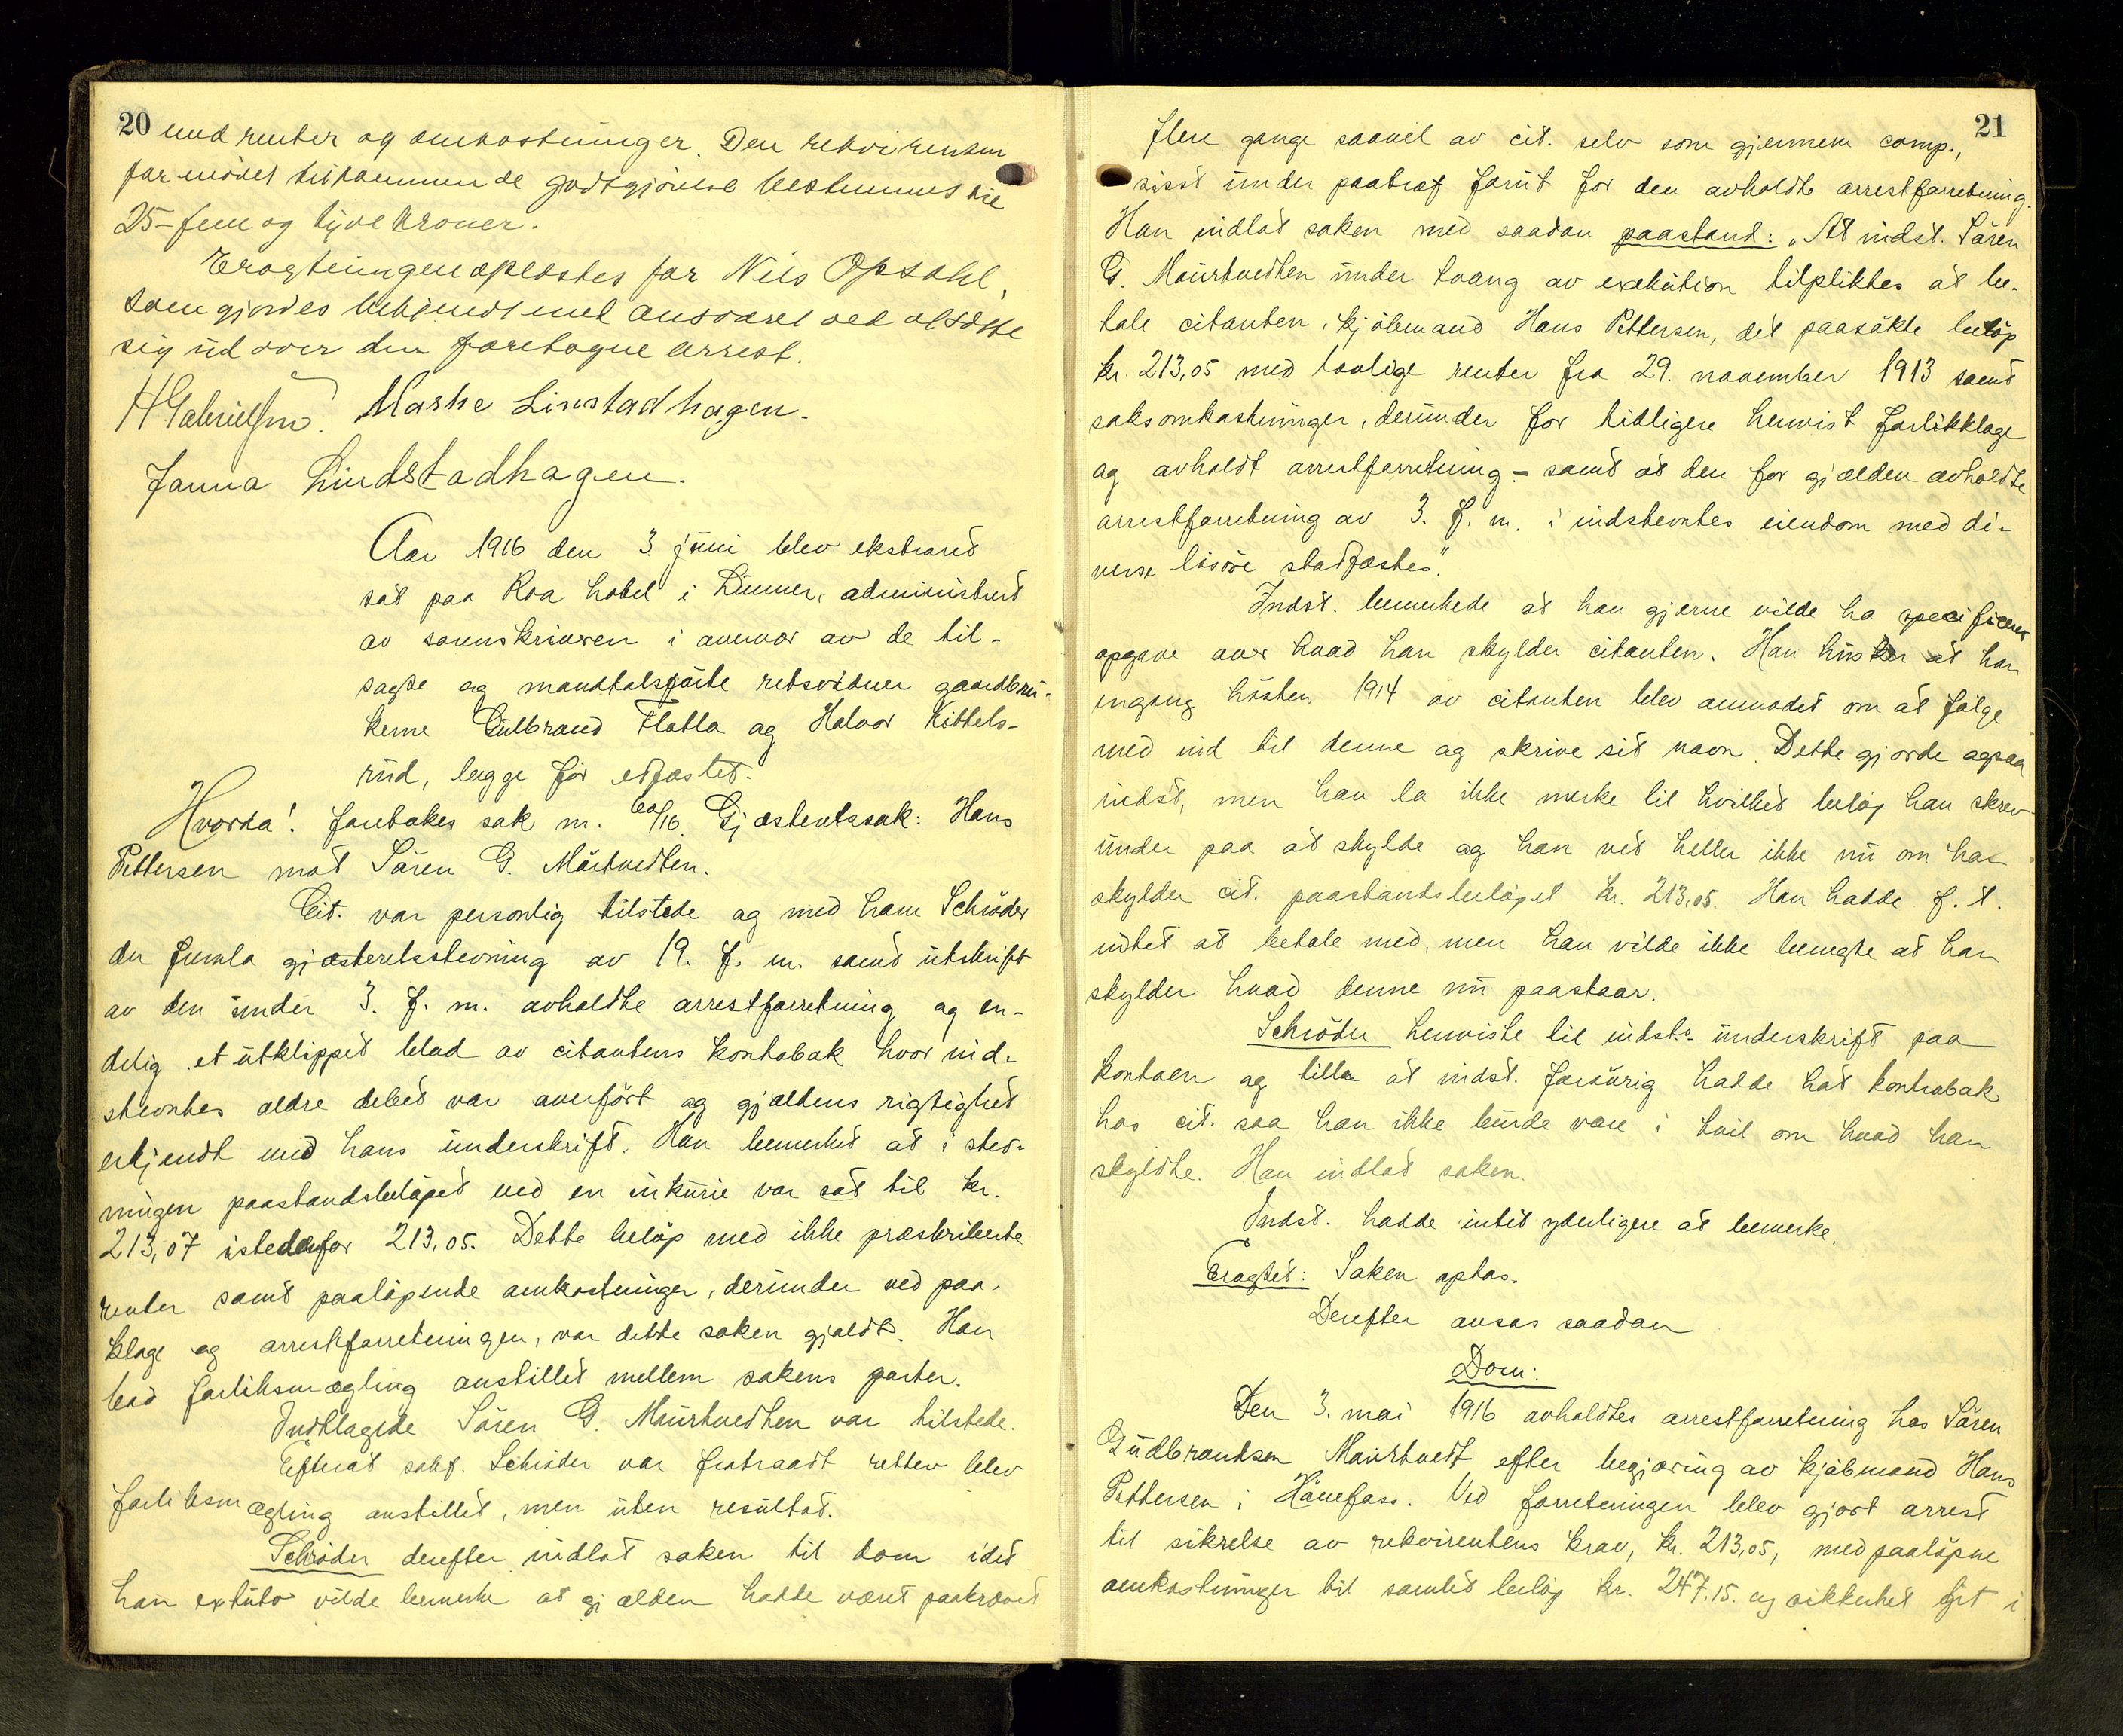 20 med renter og omkostninger. Den rekvirenten
for mödet tilkommende godtgjörelse bestemmes til
25 – fem og tyve kroner.
Eragtningen oplæstes for Nils Opsahl,
som gjordes bekjendt med ansvaret ved at sætte
sig ud over den foretagne arrest.
H Gabrielsen. Marhe Linstadhagen.
Janna Lindstadhagen.
Aar 1916 den 3. juni blev ekstraret
sat paa Roa hotel i Lunner, administrert
av sorenskriveren i overvær av de til-
sagte og mandtalsförte retsvidner gaardbru-
kerne Gulbrand Flatla og Halvor Kittels-
rud, begge för edfæstet.
Hvorda! foretokes sak nr. 60/16. Gjesteretssak: Hans
Pettersen mot Sören G. Mörtvedten.
Cit. var personlig tilstede og med ham Schröder
der fremla gjesteretsstevning av 19. f. m. samt utskrift
av den under 3. f. m. avholdte arrestforretning og en-
delig et utklippet blad av citantens kontobok hvor ind-
stevntes ældre debet var overfört og gjældens rigtighet
erkjendt med hans underskrift. Han bemerket at i stev-
ningen paastandsbelöpet ved en inkurie var sat til kr.
213,07 istedenfor 213,05. Dette belöp med ikke præskriberte
renter samt paalöpende omkostninger, derunder ved paa-
klage og arrestforretningen, var dette saken gjaldt. Han
bad forliksmægling anstillet mellem sakens parter.
Indklagede Sören G. Mourtvedten var tilstede.
Efterat sakf. Schröder var fratraadt retten blev
forliksmægling anstillet, men uten resultat.
Schröder derefter indlot saken til dom idet
han extuto vilde bemerke at gjælden hadde været paakrævet
21
flere gange saavel av cit. selv som gjennem comp.,
sisst under paatræf forut for den avholdte arrestforretning.
Han indlot saken med saadan paastand: "At indst. Sören
G. Mourtvedten under tvang av exekution tilpliktes at be-
tale citanten, kjöbmand Hans Pettersen, det paasökte belöp
kr. 213,05 med lovlige renter fra 29. november 1913 samt
saksomkostninger, derunder for tidligere henvist forlikklage
og avholdt arrestforretning – samt at den for gjælden avholdte
arrestforretning av 3. f. m. i indstevntes eiendom med di-
verse lösöre stadfæstes".
Indst. bemerkede at han gjerne vilde ha specificert
opgave over hvad han skylder citanten. Han husker at han
engang hösten 1914 av citanten blev anmodet om at fölge
med ind til denne og skrive sit navn. Dette gjorde ogsaa
indst, men han la ikke merke til hvilket belöp han skrev
under paa at skylde og han vet heller ikke nu om han
skylder cit. paastandsbelöpet kr. 213,05. Han hadde f. t.
intet at betale med, men han vilde ikke benegte at han
skylder hvad denne nu paastaar.
Schröder henviste til indst.s. underskrift paa
kontoen og tilla at indst. forövrig hadde hat kontrabok
hos cit. saa han ikke burde være i tvil om hvad han
skyldte. Han indlot saken.
Indst. hadde intet yderligere at bemerke.
Eragtet: Saken optas.
Derefter avsas saadan
Dom:
Den 3. mai 1916 avholdtes arrestforretning hos Sören
Gudbrandsen Mourtvedt efter begjæring av kjöbmand Hans
Pettersen i Hönefoss. Ved forretningen blev gjort arrest
til sikrelse av rekvirentens krav, kr. 213,05, med paalöpne
omkostninger til samlet belöp kr. 247,15. og sikkerhet git i